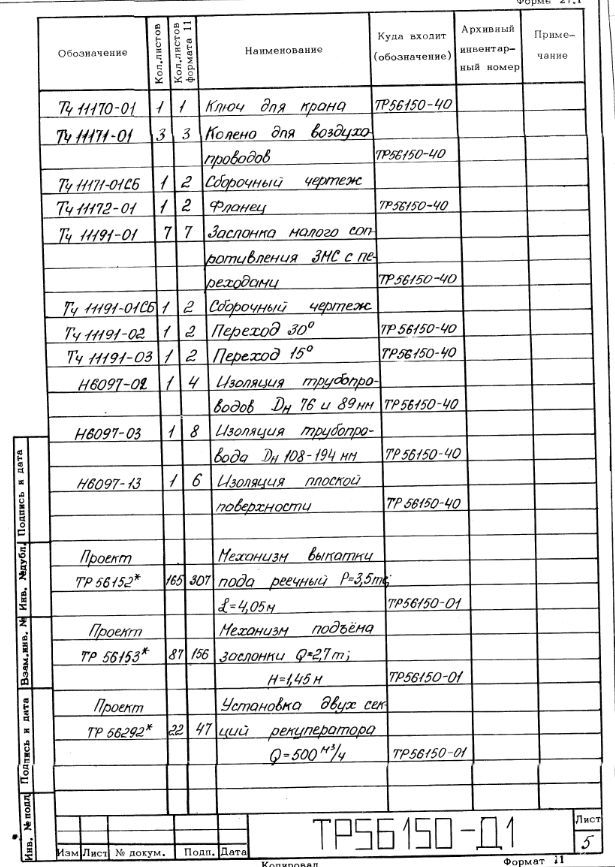 Форма 27.1
Обозначение Кол.листов Кол.листов формата 11 Наименование Куда входит (обозначение) Архивный инвентар-ный номер Приме-чание
Тч 11170-01 1 1 Ключ для крана ТР56150-40
Тч 11171-01 3 3 Колено для воздухо-
проводов ТР56150-40
Тч 11171-01СБ 1 2 Сборочный чертеж
Тч 11172-01 1 2 Фланец ТР56150-40
Тч 11191-01 7 7 Заслонка малого соп-
ротивления ЗМС с пе-
реходами ТР56150-40
Тч 11191-01СБ 1 2 Сборочный чертеж
Тч 11191-02 1 2 Переход 30° ТР56150-40
Тч 11191-03 1 2 Переход 15° ТР56150-40
Н6097-02 1 4 Изоляция трубопро-
водов Dн 76 и 89 мм ТР56150-40
Н6097-03 1 8 Изоляция трубопро-
вода Dн 108-194 мм ТР56150-40
Н6097-13 1 6 Изоляция плоской
поверхности ТР56150-40
Проект Механизм выкатки
ТР 56152* 165 307 пода реечный Р=3,5тс;
L=4,05м ТР56150-01
Проект Механизм подъёма
ТР 56153* 87 156 заслонки Q=2,7т;
Н=1,45м ТР56150-01
Проект Установка двух сек-
ТР 56292* 22 47 ций рекуператора
Q=500 м³/ч ТР56150-01
Инв. № подл Подпись и дата Взам.инв. № Инв. №дубл. Подпись и дата
ТР56150-Д1
Лист
5
Изм Лист № докум. Подп. Дата
Копировал Формат 11